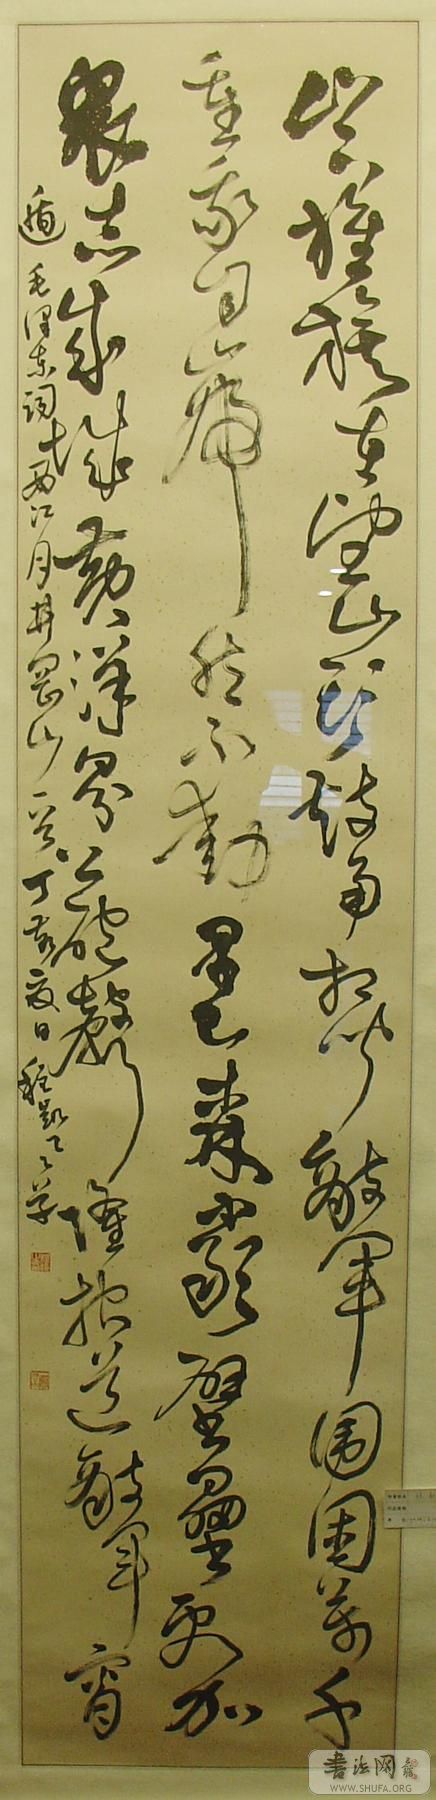 山下旌旗在望山头鼓角相闻敌军围困万千
重我自岿然不动早已森严壁垒更加
众志成城黄洋界上炮声隆报道敌军宵
遁毛泽东词西江月井冈山一首丁亥夏日
书法网
WWW.SHUFA.ORG